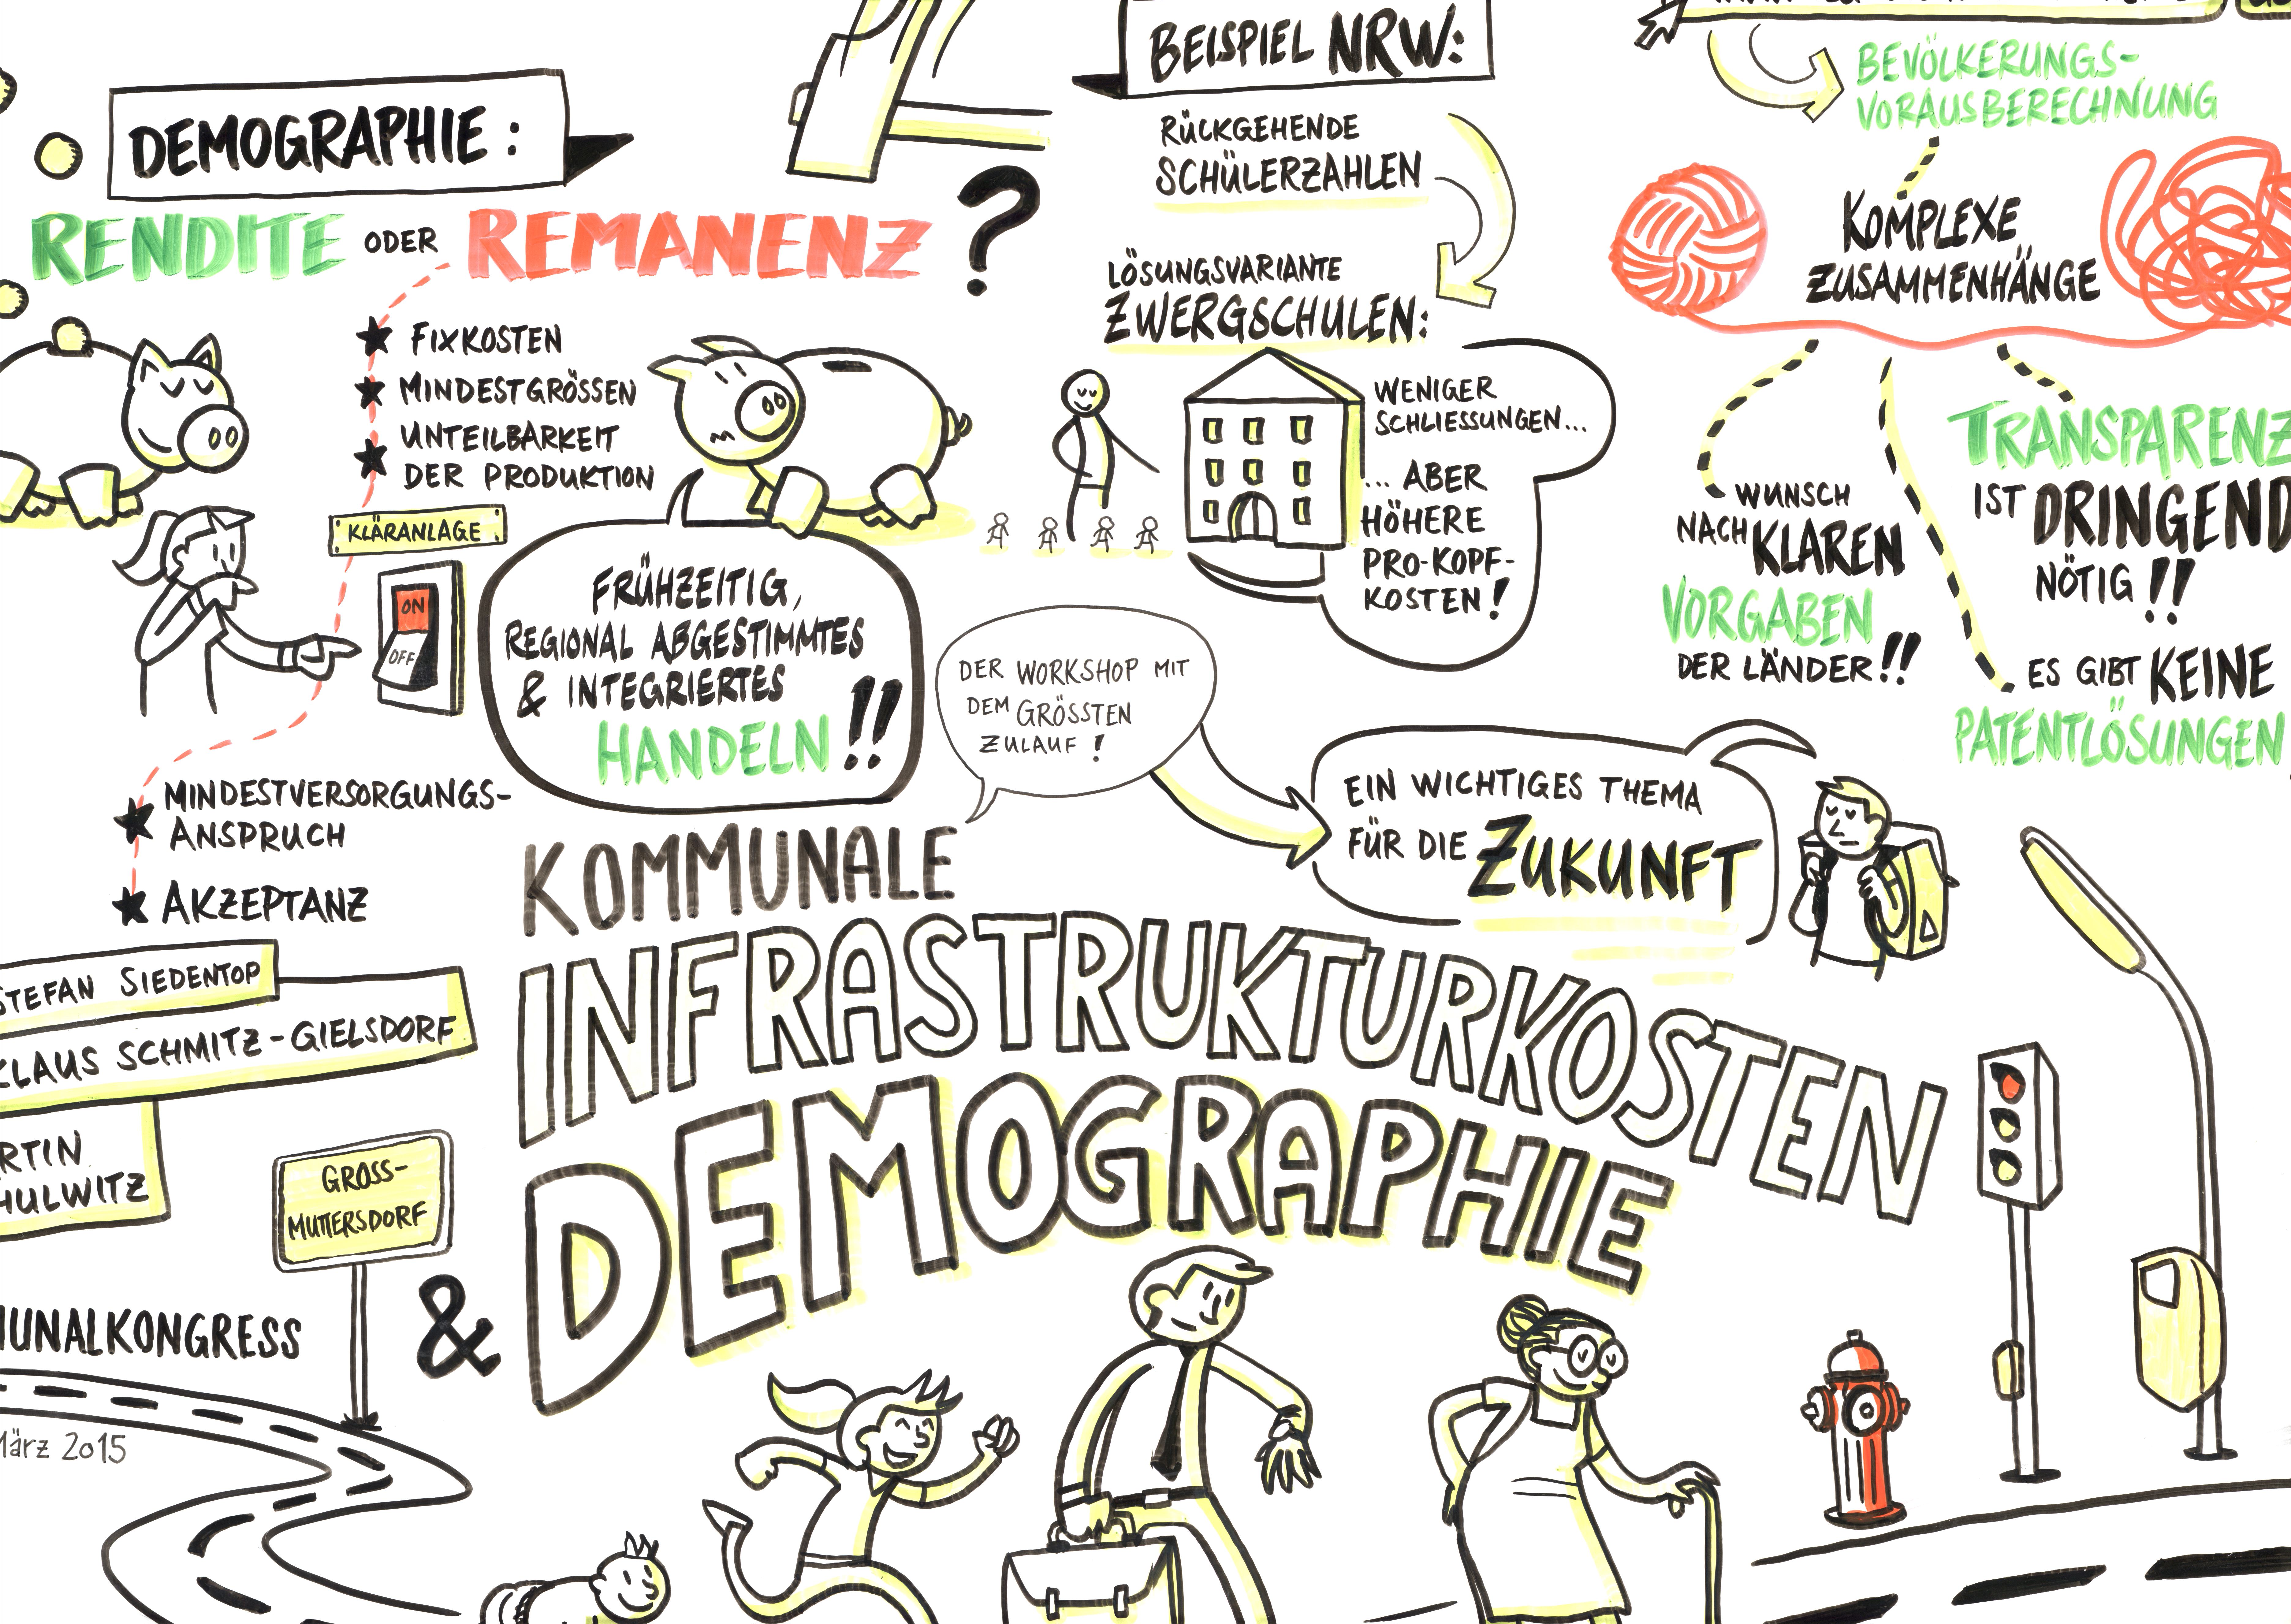 DEMOGRAPHIE:
RENDITE ODER REMANENZ?
FIXKOSTEN
MINDESTGRÖSSEN
UNTEILBARKEIT
DER PRODUKTION
KLÄRANLAGE
ON
OFF
FRÜHZEITIG,
REGIONAL ABGESTIMMTES
& INTEGRIERTES
HANDELN!!
MINDESTVERSORGUNGS-
ANSPRUCH
AKZEPTANZ
BEISPIEL NRW:
RÜCKGEHENDE
SCHÜLERZAHLEN
LÖSUNGSVARIANTE
ZWERGSCHULEN:
WENIGER
SCHLIESSUNGEN...
...ABER
HÖHERE
PRO-KOPF-
KOSTEN!
BEVÖLKERUNGS-
VORAUSBERECHNUNG
KOMPLEXE
ZUSAMMENHÄNGE
WUNSCH
NACH KLAREN
VORGABEN
DER LÄNDER!!
TRANSPARENZ
IST DRINGEND
NÖTIG!!
ES GIBT KEINE
PATENTLÖSUNGEN
DER WORKSHOP MIT
DEM GRÖSSTEN
ZULAUF!
EIN WICHTIGES THEMA
FÜR DIE ZUKUNFT
KOMMUNALE
INFRASTRUKTURKOSTEN
& DEMOGRAPHIE
STEFAN SIEDENTOP
KLAUS SCHMITZ-GIELSDORF
RTIN
HULWITZ
GROSS-
MUTTERSDORF
MUNALKONGRESS
März 2015